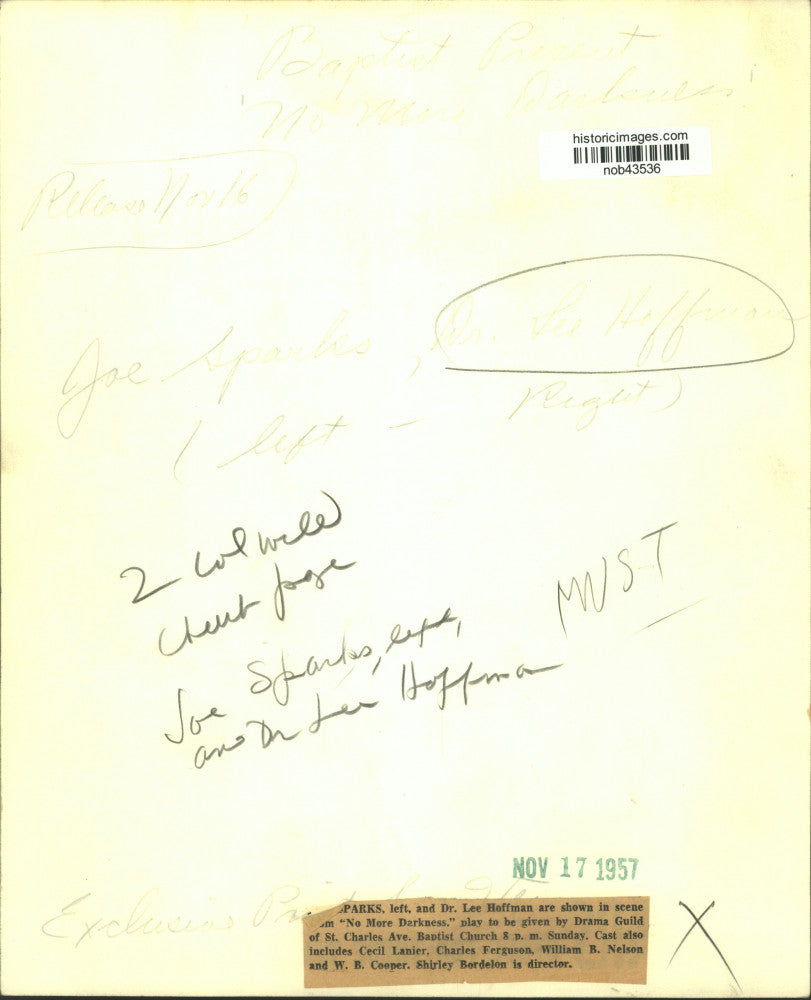 Baptist Present
'No More Darkness'
historicimages.com
nob43536
Release Nov 16
Joe Sparks, Dr. Lee Hoffman
(left - Right)
2 col
page
MUST
Joe Sparks, left,
and Dr Lee Hoffman
NOV 17 1957
Exclusive
SPARKS, left, and Dr. Lee Hoffman are shown in scene
"No More Darkness," play to be given by Drama Guild
of St. Charles Ave. Baptist Church 8 p. m. Sunday. Cast also
includes Cecil Lanier, Charles Ferguson, William B. Nelson
and W. B. Cooper. Shirley Bordelon is director.
X